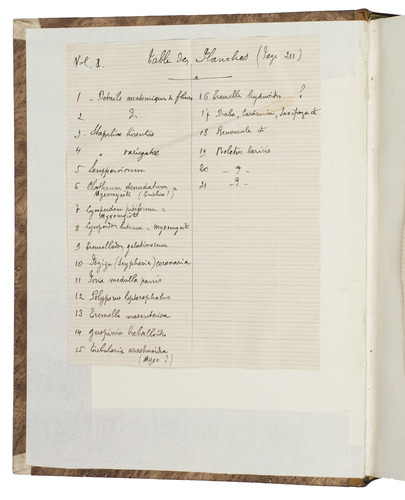 Vol. 8. Table des Planches (Page 211)
1 - Details anatomiques de fleurs
2
3 - Stapelia hirsuta
4 " variegata
5 Sempervivum
6 Clathrum denudatum =
Myxomycète
7 Lycoperdon piriforme =
Myxomycète
8 Lycoperdon = Myxomycète
9 Tremellodon gelatinosum
10 Peziza coronaria
11 Poria medulla panis
12 Polyporus leptocephalus
13 Tremella mesenterica
14 guepinia helvelloides
15 arachnoidea
(Myxo ?)
16 Tremella ?
17 Draba, Cardamine, Saxifraga etc
18 etc
19 Boletus
20 - ? -
21 - ? -